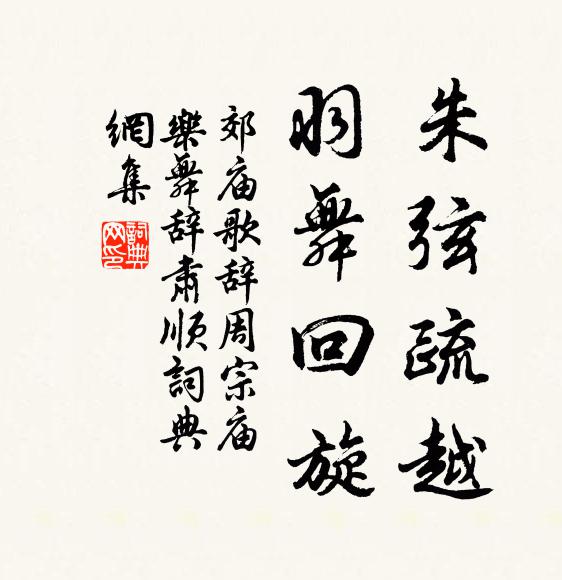 朱弦疏越
羽舞回旋
郊庙歌辞周宗庙
樂舞辞肃順詞典
網集
詞典网印